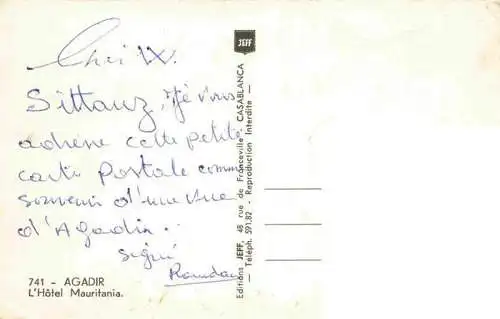 Sittanz, Je vous
adresse cette petite
carte Postale comme
souvenir d'une vue
d'Agadir..
signé
Ramdan
741 - AGADIR
L'Hôtel Mauritania.
JEFF
Editions JEFF, 48 rue de Franceville - CASABLANCA
— Téléph. 591.82 - Reproduction Interdite —